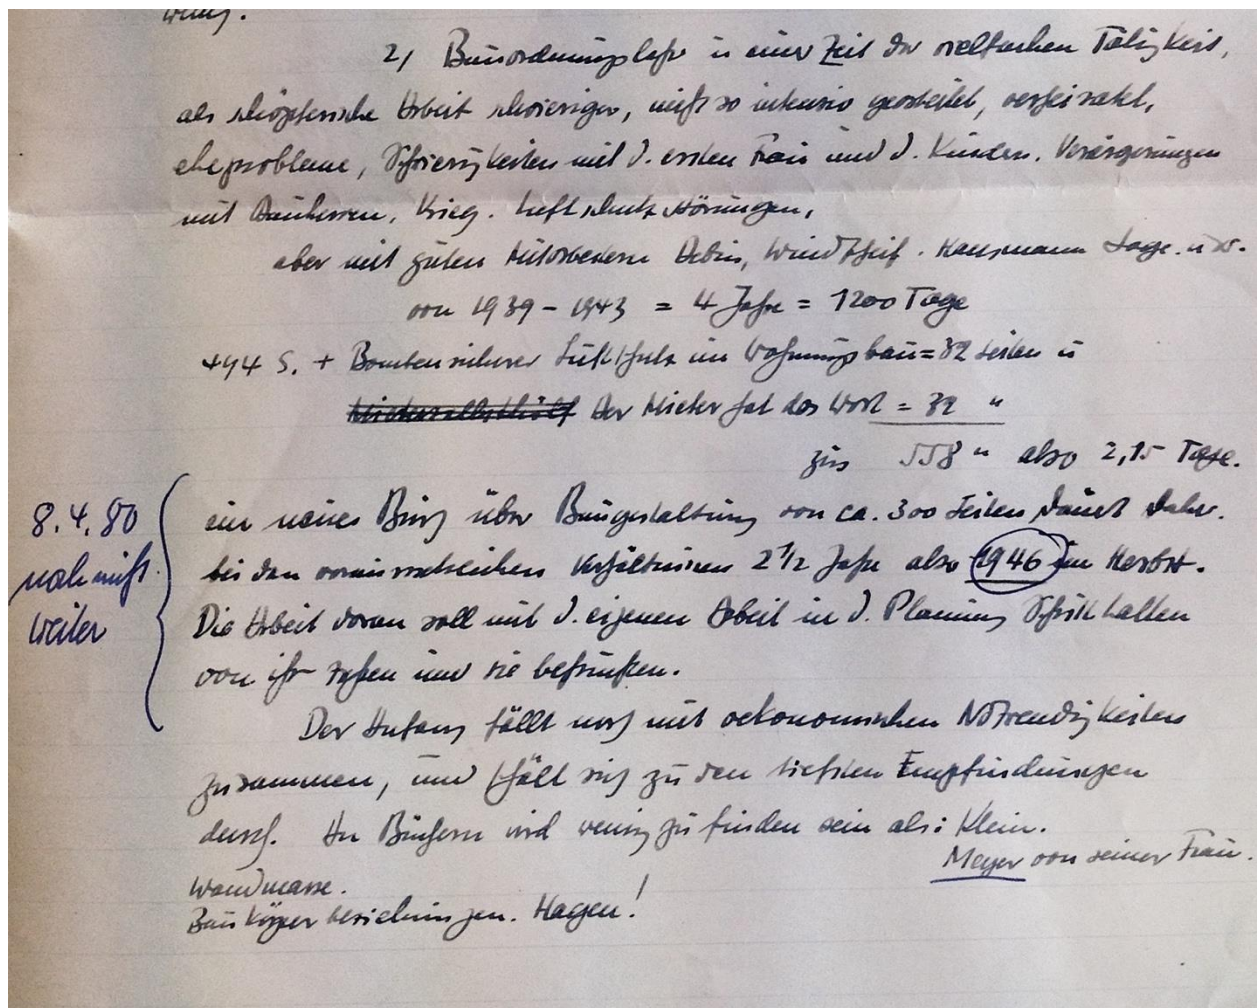 wenig.
2) Bauordnungslehre in einer Zeit der vielfachen Tätigkeit,
als schöpferische Arbeit schwieriger, nicht so intensiv gearbeitet, verheiratet,
eheprobleme, Schwierigkeiten mit d. ersten Frau und d. Kindern. Verärgerungen
mit Bauherren, Krieg. Luftschutz störungen,
aber mit guten Mitarbeitern
von 1939 – 1943 = 4 Jahre = 1200 Tage
494 S. + Bombensicherer Luftschutz im Wohnungsbau = 32 Seiten u
Der Mieter hat das Wort = 32 "
zus 558 " also 2,15 Tage.
8.4.80
noch nicht
weiter
ein neues Buch über Baugestaltung von ca. 300 Seiten dauert daher.
bei den voraussichtlichen Verhältnissen 2 1/2 Jahre also 1946 im Herbst.
Die Arbeit daran soll mit d. eigenen Arbeit in d. Planung Schritt halten
von ihr zehren und sie befruchten.
Der Anfang fällt noch mit oekonomischen Notwendigkeiten
zusammen, und schält sich zu den tiefsten Empfindungen
durch. An Büchern wird wenig zu finden sein als: Klein.
Meyer von seiner Frau.
Wandmasse.
Baukörper beziehungen. Hagen!